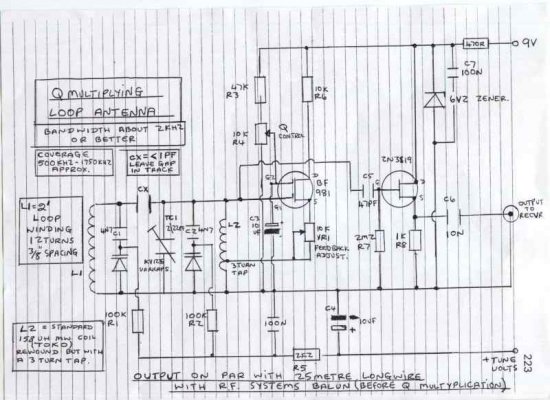 Q MULTIPLYING
LOOP ANTENNA
BANDWIDTH ABOUT 2KHZ
OR BETTER
COVERAGE
500KHZ-1750KHZ
APPROX.
CX = <1PF
LEAVE GAP
IN TRACK
L1=2'
LOOP
WINDING
12 TURNS
3/8" SPACING
L1
L2 = STANDARD
158 UH MW COIL
(TOKO)
REWOUND BUT WITH
A 3 TURN TAP.
47K
R3
10K
R4
Q
CONTROL
10K
R6
470R
9V
C7
100N
6V2 ZENER.
2N3819
D
S
G2
G1
D
S
BF
981
C5
47PF
C6
10N
OUTPUT
TO
RECVR
CX
4N7
C1
TC1
2/22PF
C2
4N7
L2
3 TURN
TAP
C3
10
UF
10K
VR1
FEEDBACK
ADJUST.
2M2
R7
1K
R8
KV1235
VARICAPS.
100K
R1
100K
R2
100N
C4
10UF
2K2
R5
+TUNE
VOLTS
OUTPUT ON PAR WITH 25 METRE LONGWIRE
WITH R.F. SYSTEMS BALUN (BEFORE Q MULTYPLICATION)
223